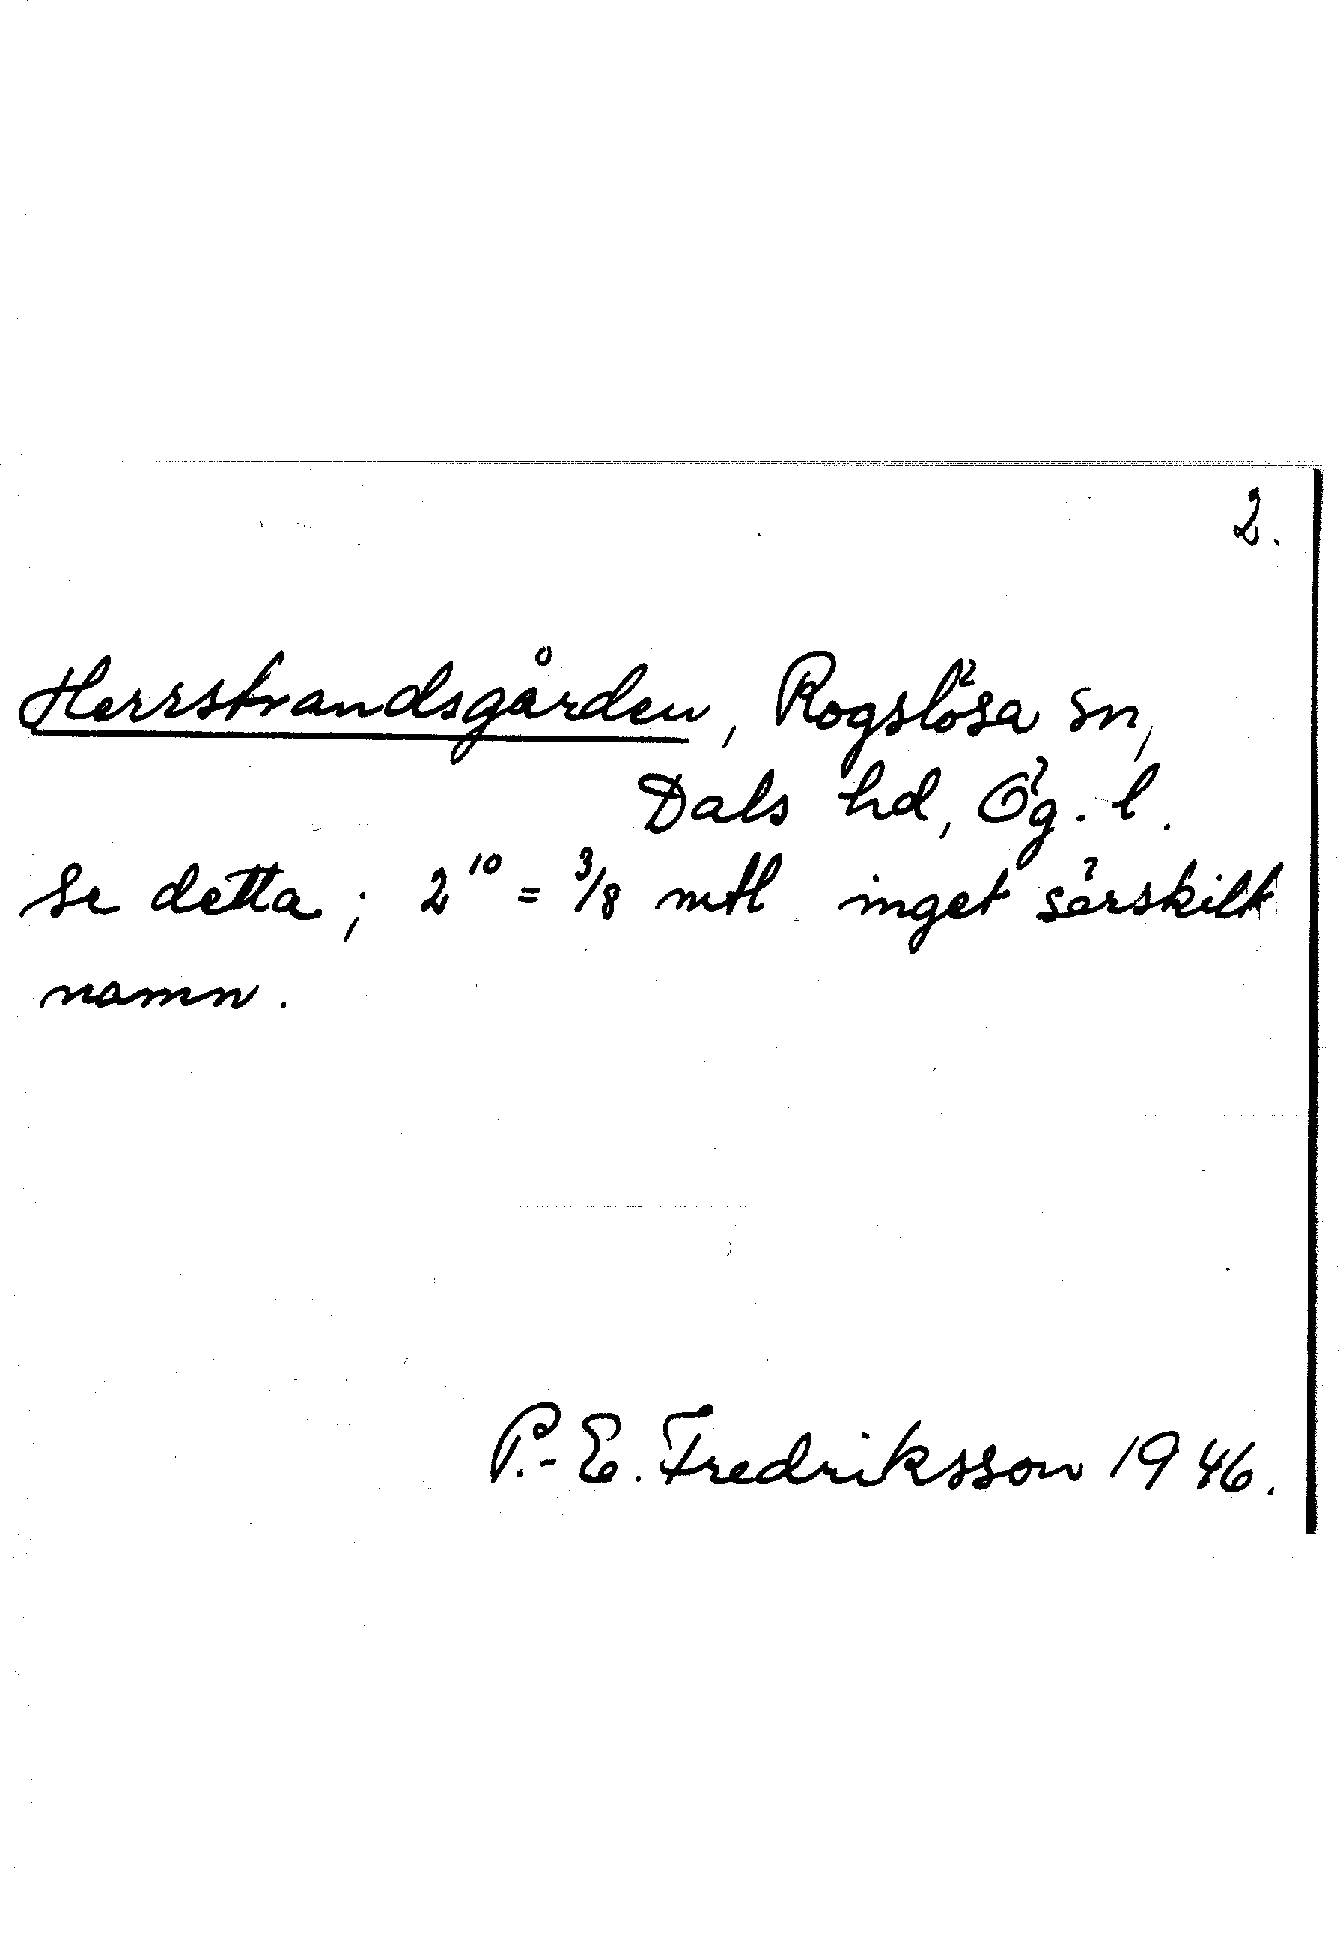 2.
Herrstrandsgården, Rogslösa sn,
Dals hd, Ög. l.
Se detta; 2¹⁰ = 3/8 mtl inget särskilt
namn.
P.-E. Fredriksson 1946.